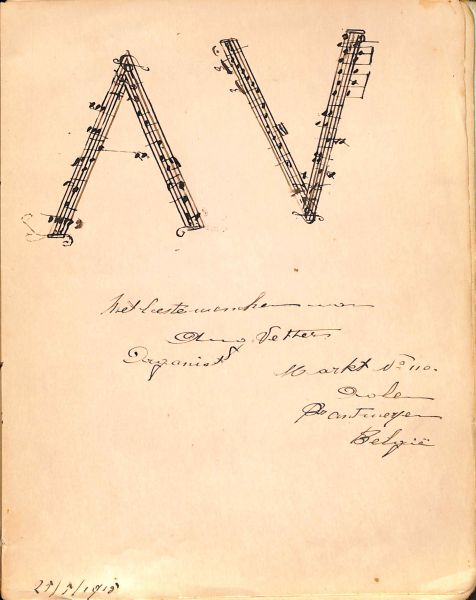 AV
Met beste wenschen van
Aug Vetters
Organist
Markt No 110.
Aolen
Antwerpen
België
25/5/1915